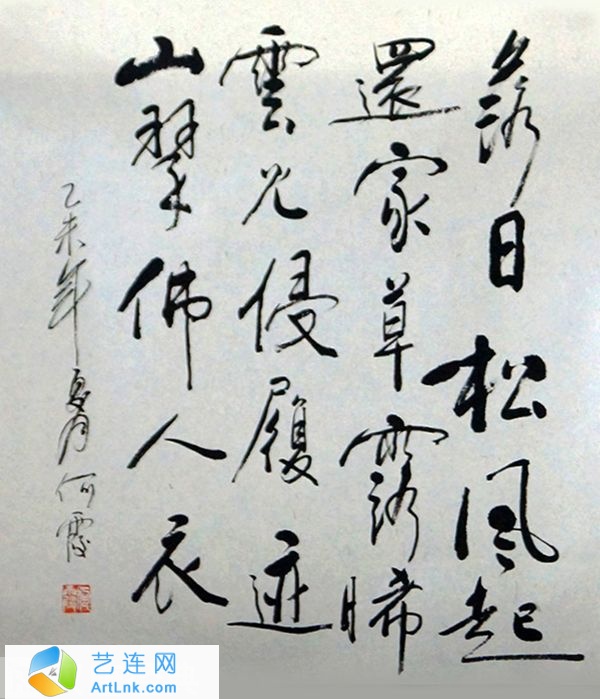 落日松风起
還家草露晞
雲光侵履迹
山翠佛人衣
乙未年夏月何霞
艺连网
ArtLnk.com